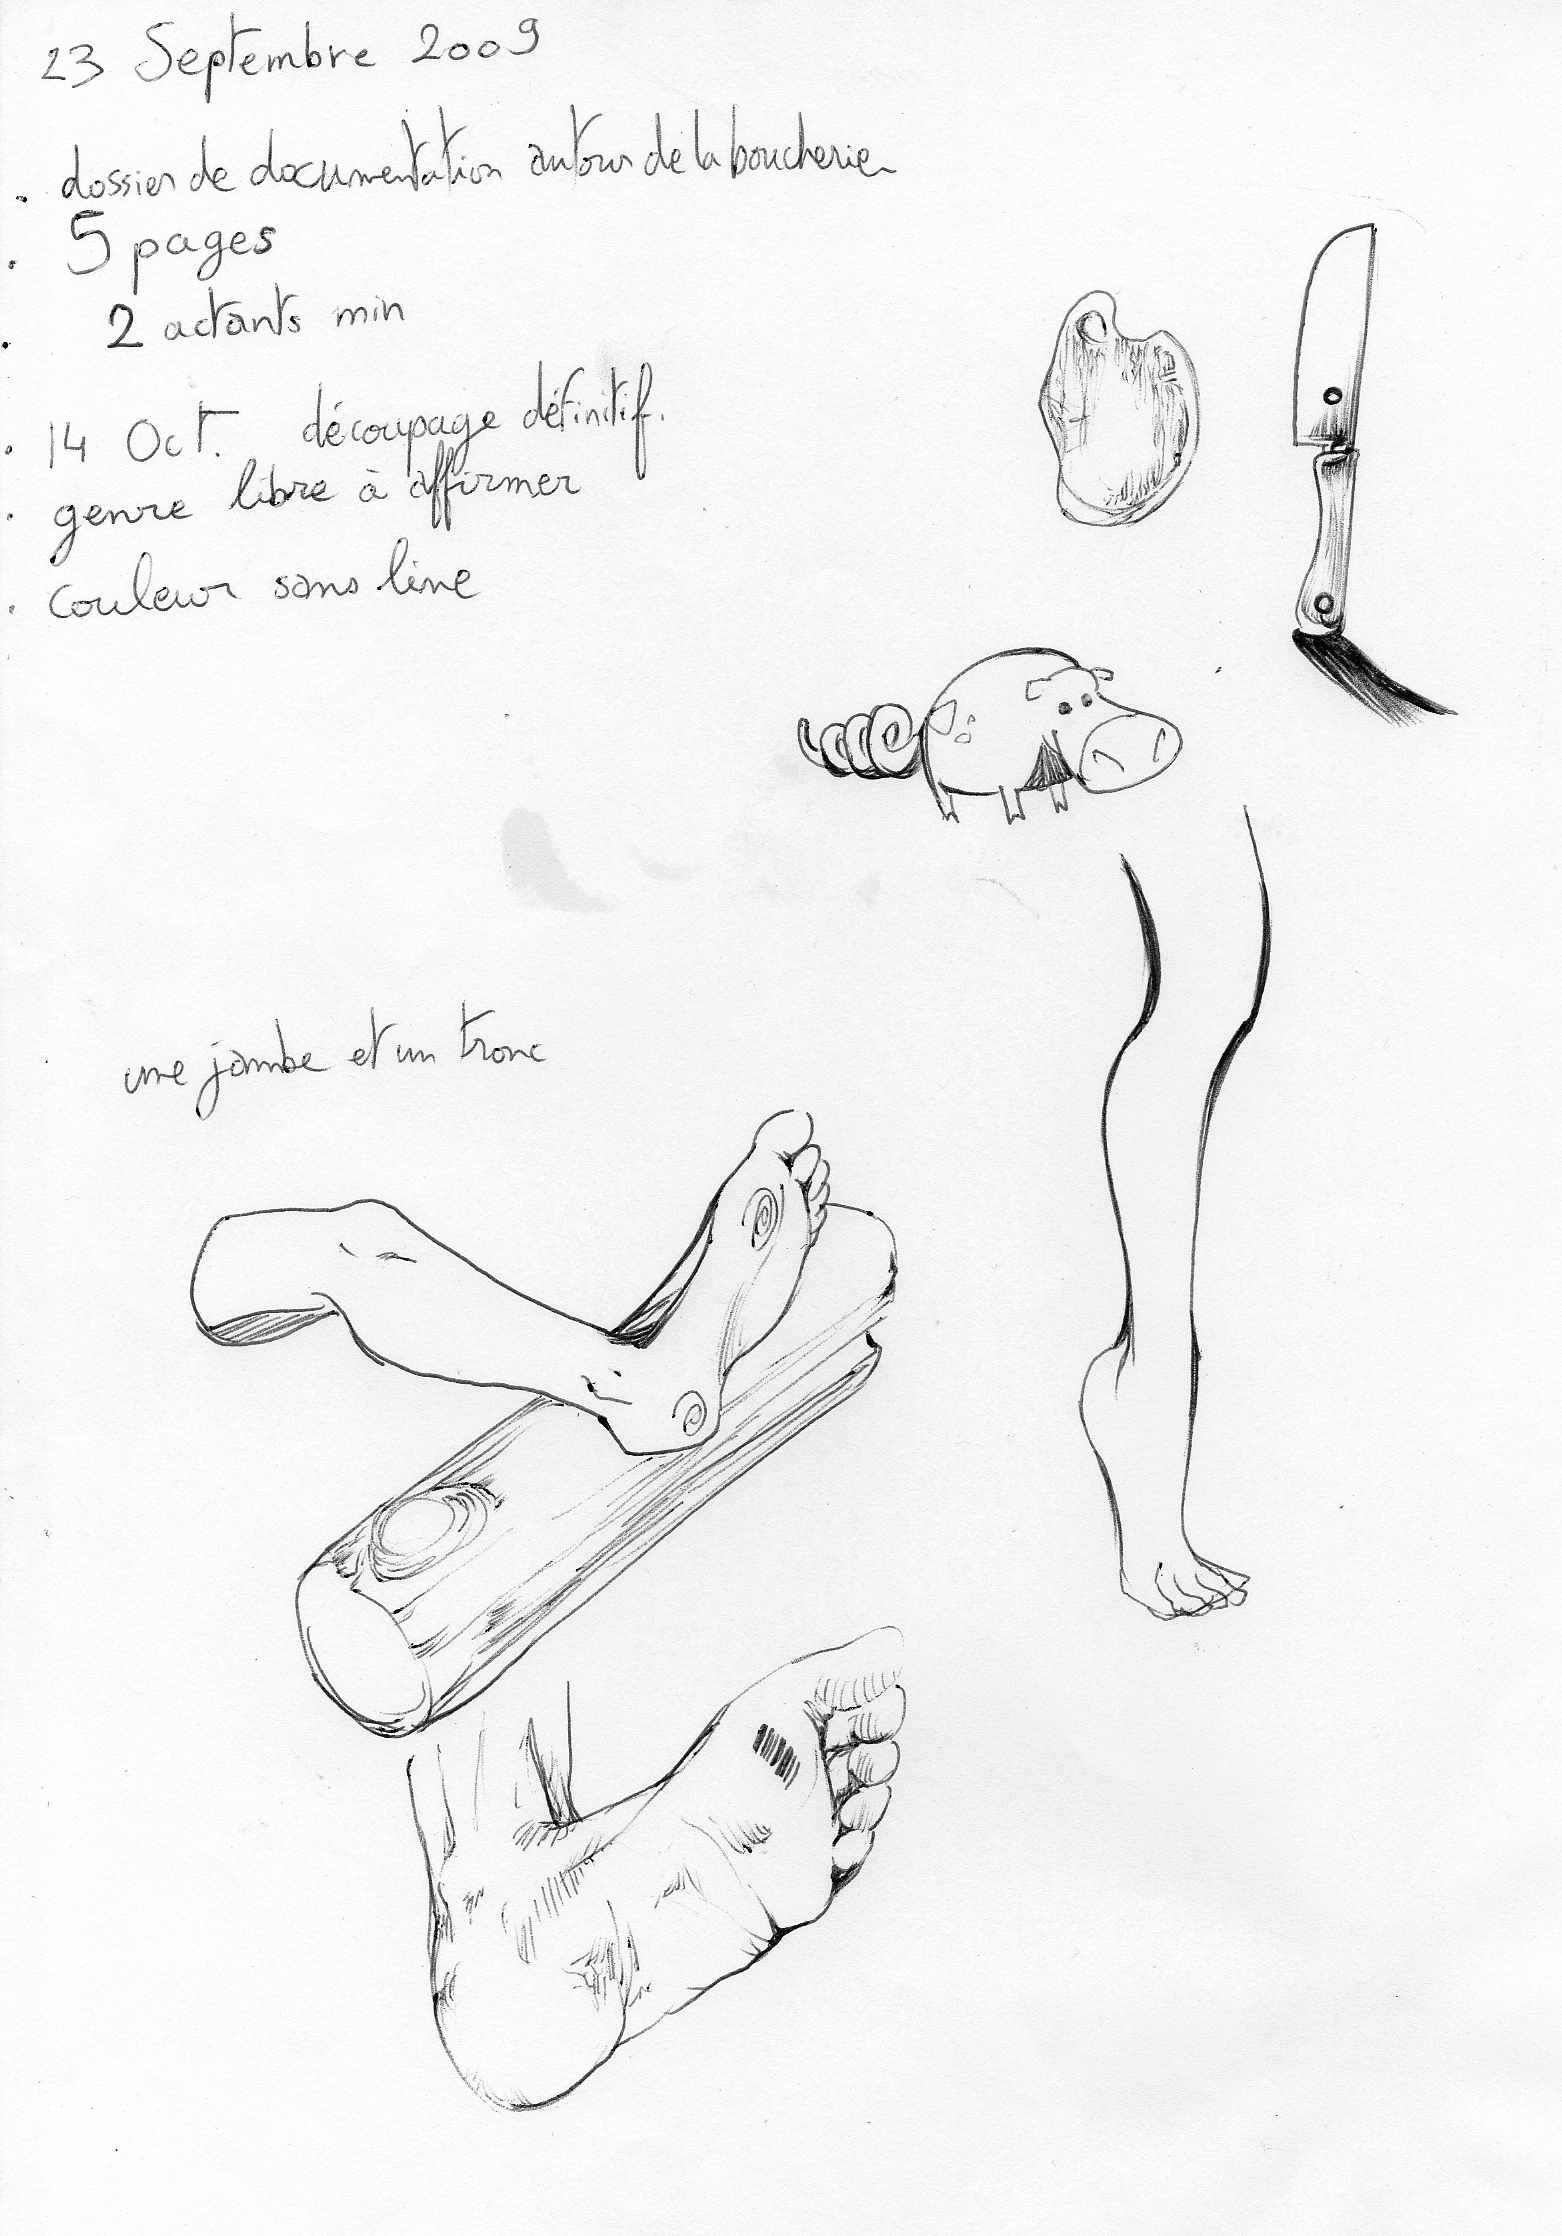 23 Septembre 2009
. dossier de documentation autour de la boucherie
. 5 pages
. 2 actants min
. 14 Oct. découpage définitif.
. genre libre à affirmer
. couleur sans line
une jambe et un tronc